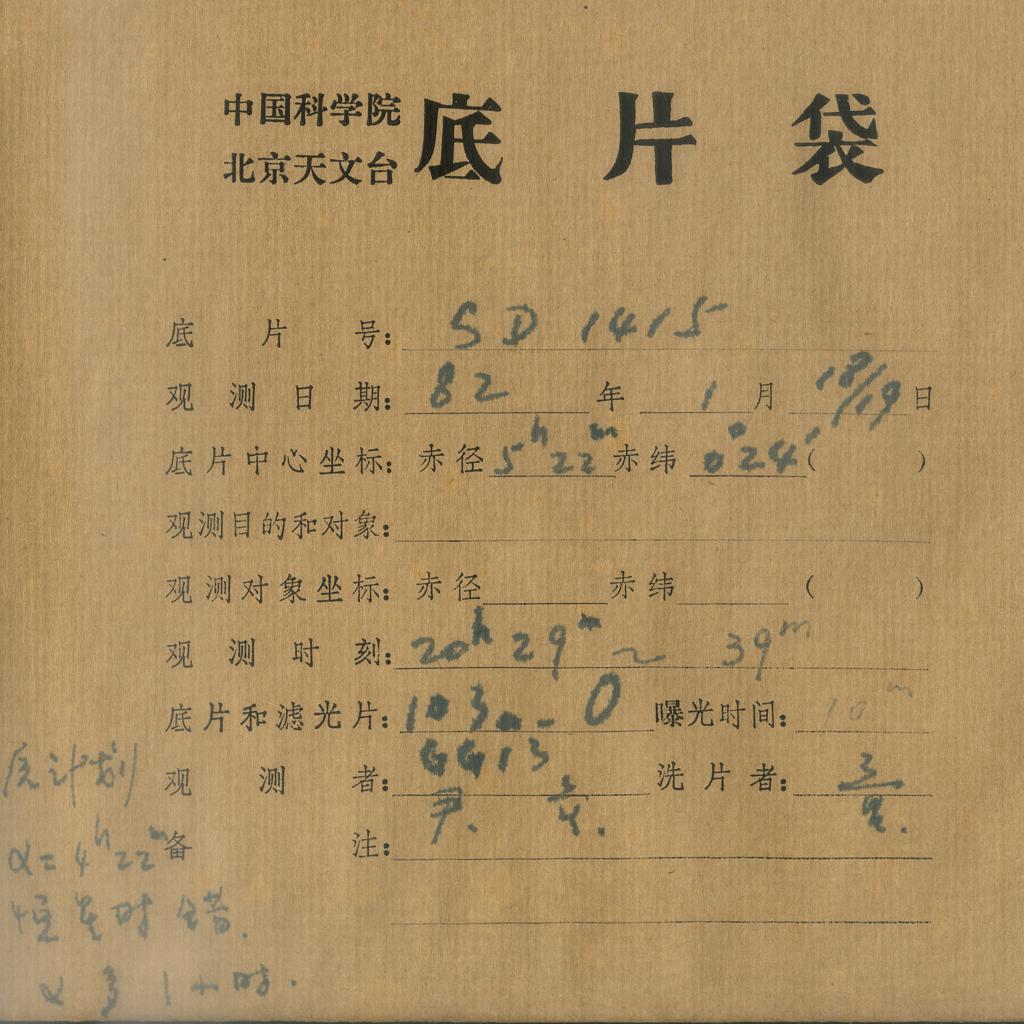 中国科学院
北京天文台
底片袋
底片号: SD 1415
观测日期: 82 年 1 月 18/19 日
底片中心坐标: 赤径 5h22m 赤纬 0°24′ ( )
观测目的和对象:
观测对象坐标: 赤径 赤纬 ( )
观测时刻: 20h29m ~ 39m
底片和滤光片: 103a-O 曝光时间: 10m
GG13
观测者: 尹. 洗片者:
备注:
原计划
α=4h22m
恒星时错.
α多1小时.